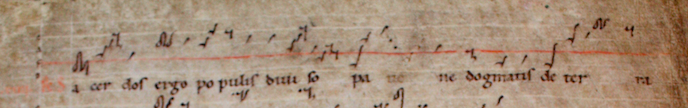 a cer dos ergo populis diui so pa ne ne dogmatis de ter ra